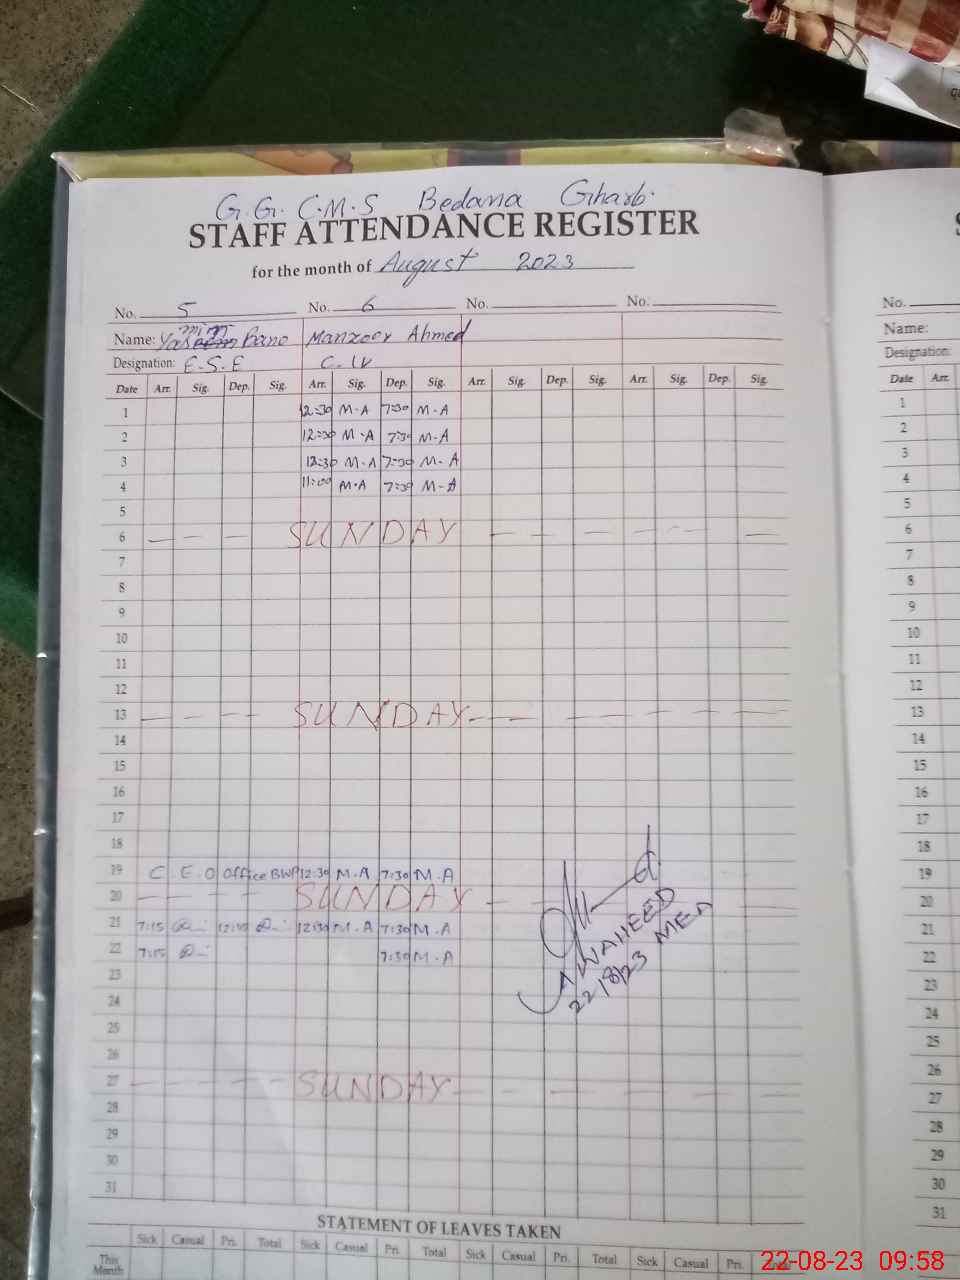 G.G. C.M.S Bedana Gharbi
STAFF ATTENDANCE REGISTER
for the month of August 2023
No. 5 No. 6 No. No. No.
Name: Yasmin Bano Manzoor Ahmed Name:
Designation: E.S.E C.IV Designation:
Date Arr. Sig. Dep. Sig. Arr. Sig. Dep. Sig. Arr. Sig. Dep. Sig. Arr. Sig. Dep. Sig. Date Arr.
1 12:30 M-A 7:30 M-A 1
2 12:30 M-A 7:30 M-A 2
3 12:30 M-A 7:30 M-A 3
4 11:00 M-A 7:30 M-A 4
5 5
6 SUNDAY 6
7 7
8 8
9 9
10 10
11 11
12 12
13 SUNDAY 13
14 14
15 15
16 16
17 17
18 18
19 C.E.O Office BWP 12:30 M.A 7:30 M.A 19
20 SUNDAY 20
21 7:15 12:30 M.A 7:30 M.A 21
22 7:15 7:30 M.A 22
A WAHEED
MEA
22/8/23
23 23
24 24
25 25
26 26
27 SUNDAY 27
28 28
29 29
30 30
31 31
STATEMENT OF LEAVES TAKEN
Sick Casual Pri. Total Sick Casual Pri. Total Sick Casual Pri. Total Sick Casual Pri. Total
This Month
22-08-23 09:58